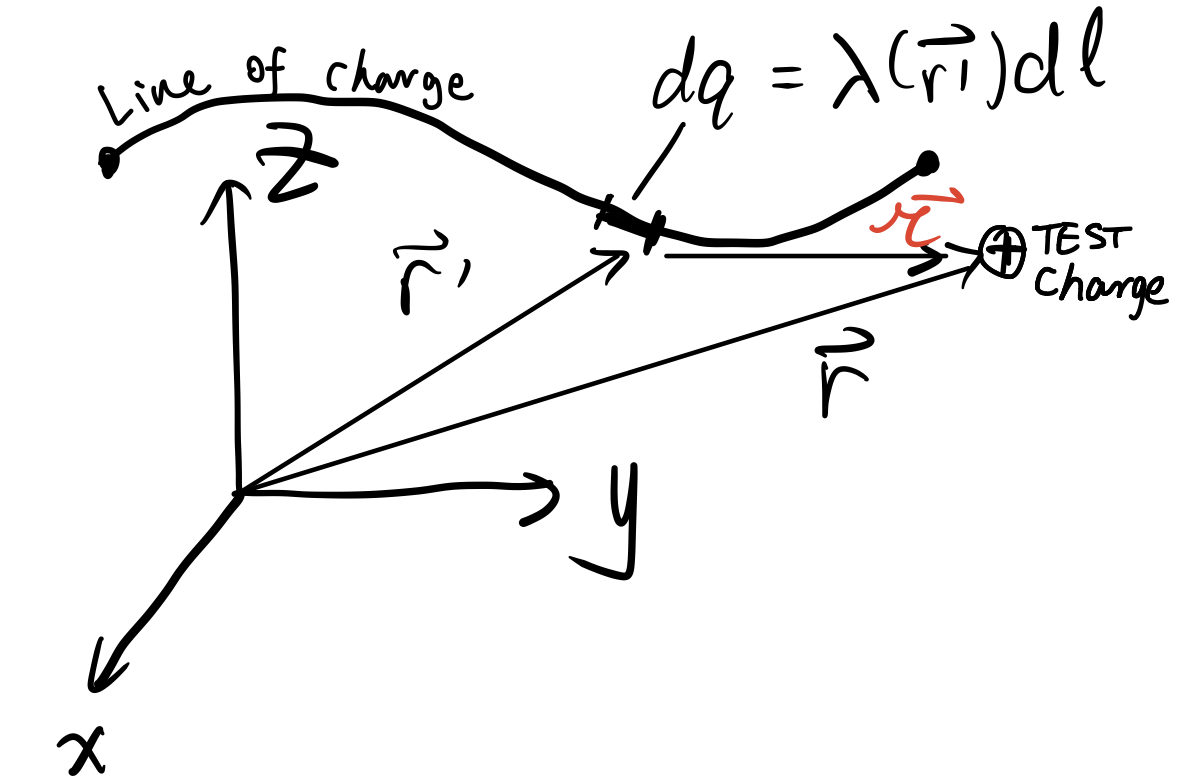 Line of charge
dq = λ(r⃗')dl
z
𝓇⃗
TEST
Charge
r⃗'
r⃗
y
x